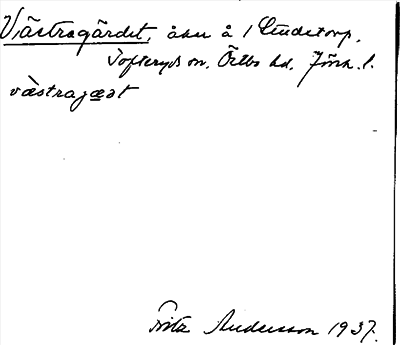 Västragärdet, åker å 1 Lindetorp,
Tofteryds sn. Östbo hd. Jönk. l.
västragæ̱t
Fritz Andersson 1937.